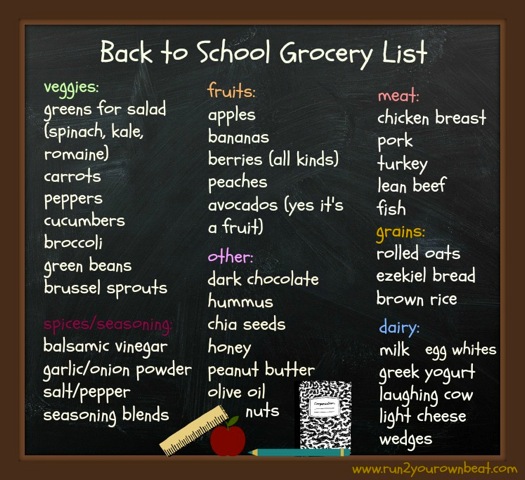 Back to School Grocery List
veggies:
greens for salad
(spinach, kale,
romaine)
carrots
peppers
cucumbers
broccoli
green beans
brussel sprouts
spices/seasoning:
balsamic vinegar
garlic/onion powder
salt/pepper
seasoning blends
fruits:
apples
bananas
berries (all kinds)
peaches
avocados (yes it's
a fruit)
other:
dark chocolate
hummus
chia seeds
honey
peanut butter
olive oil
nuts
meat:
chicken breast
pork
turkey
lean beef
fish
grains:
rolled oats
ezekiel bread
brown rice
dairy:
milk egg whites
greek yogurt
laughing cow
light cheese
wedges
www.run2yourownbeat.com